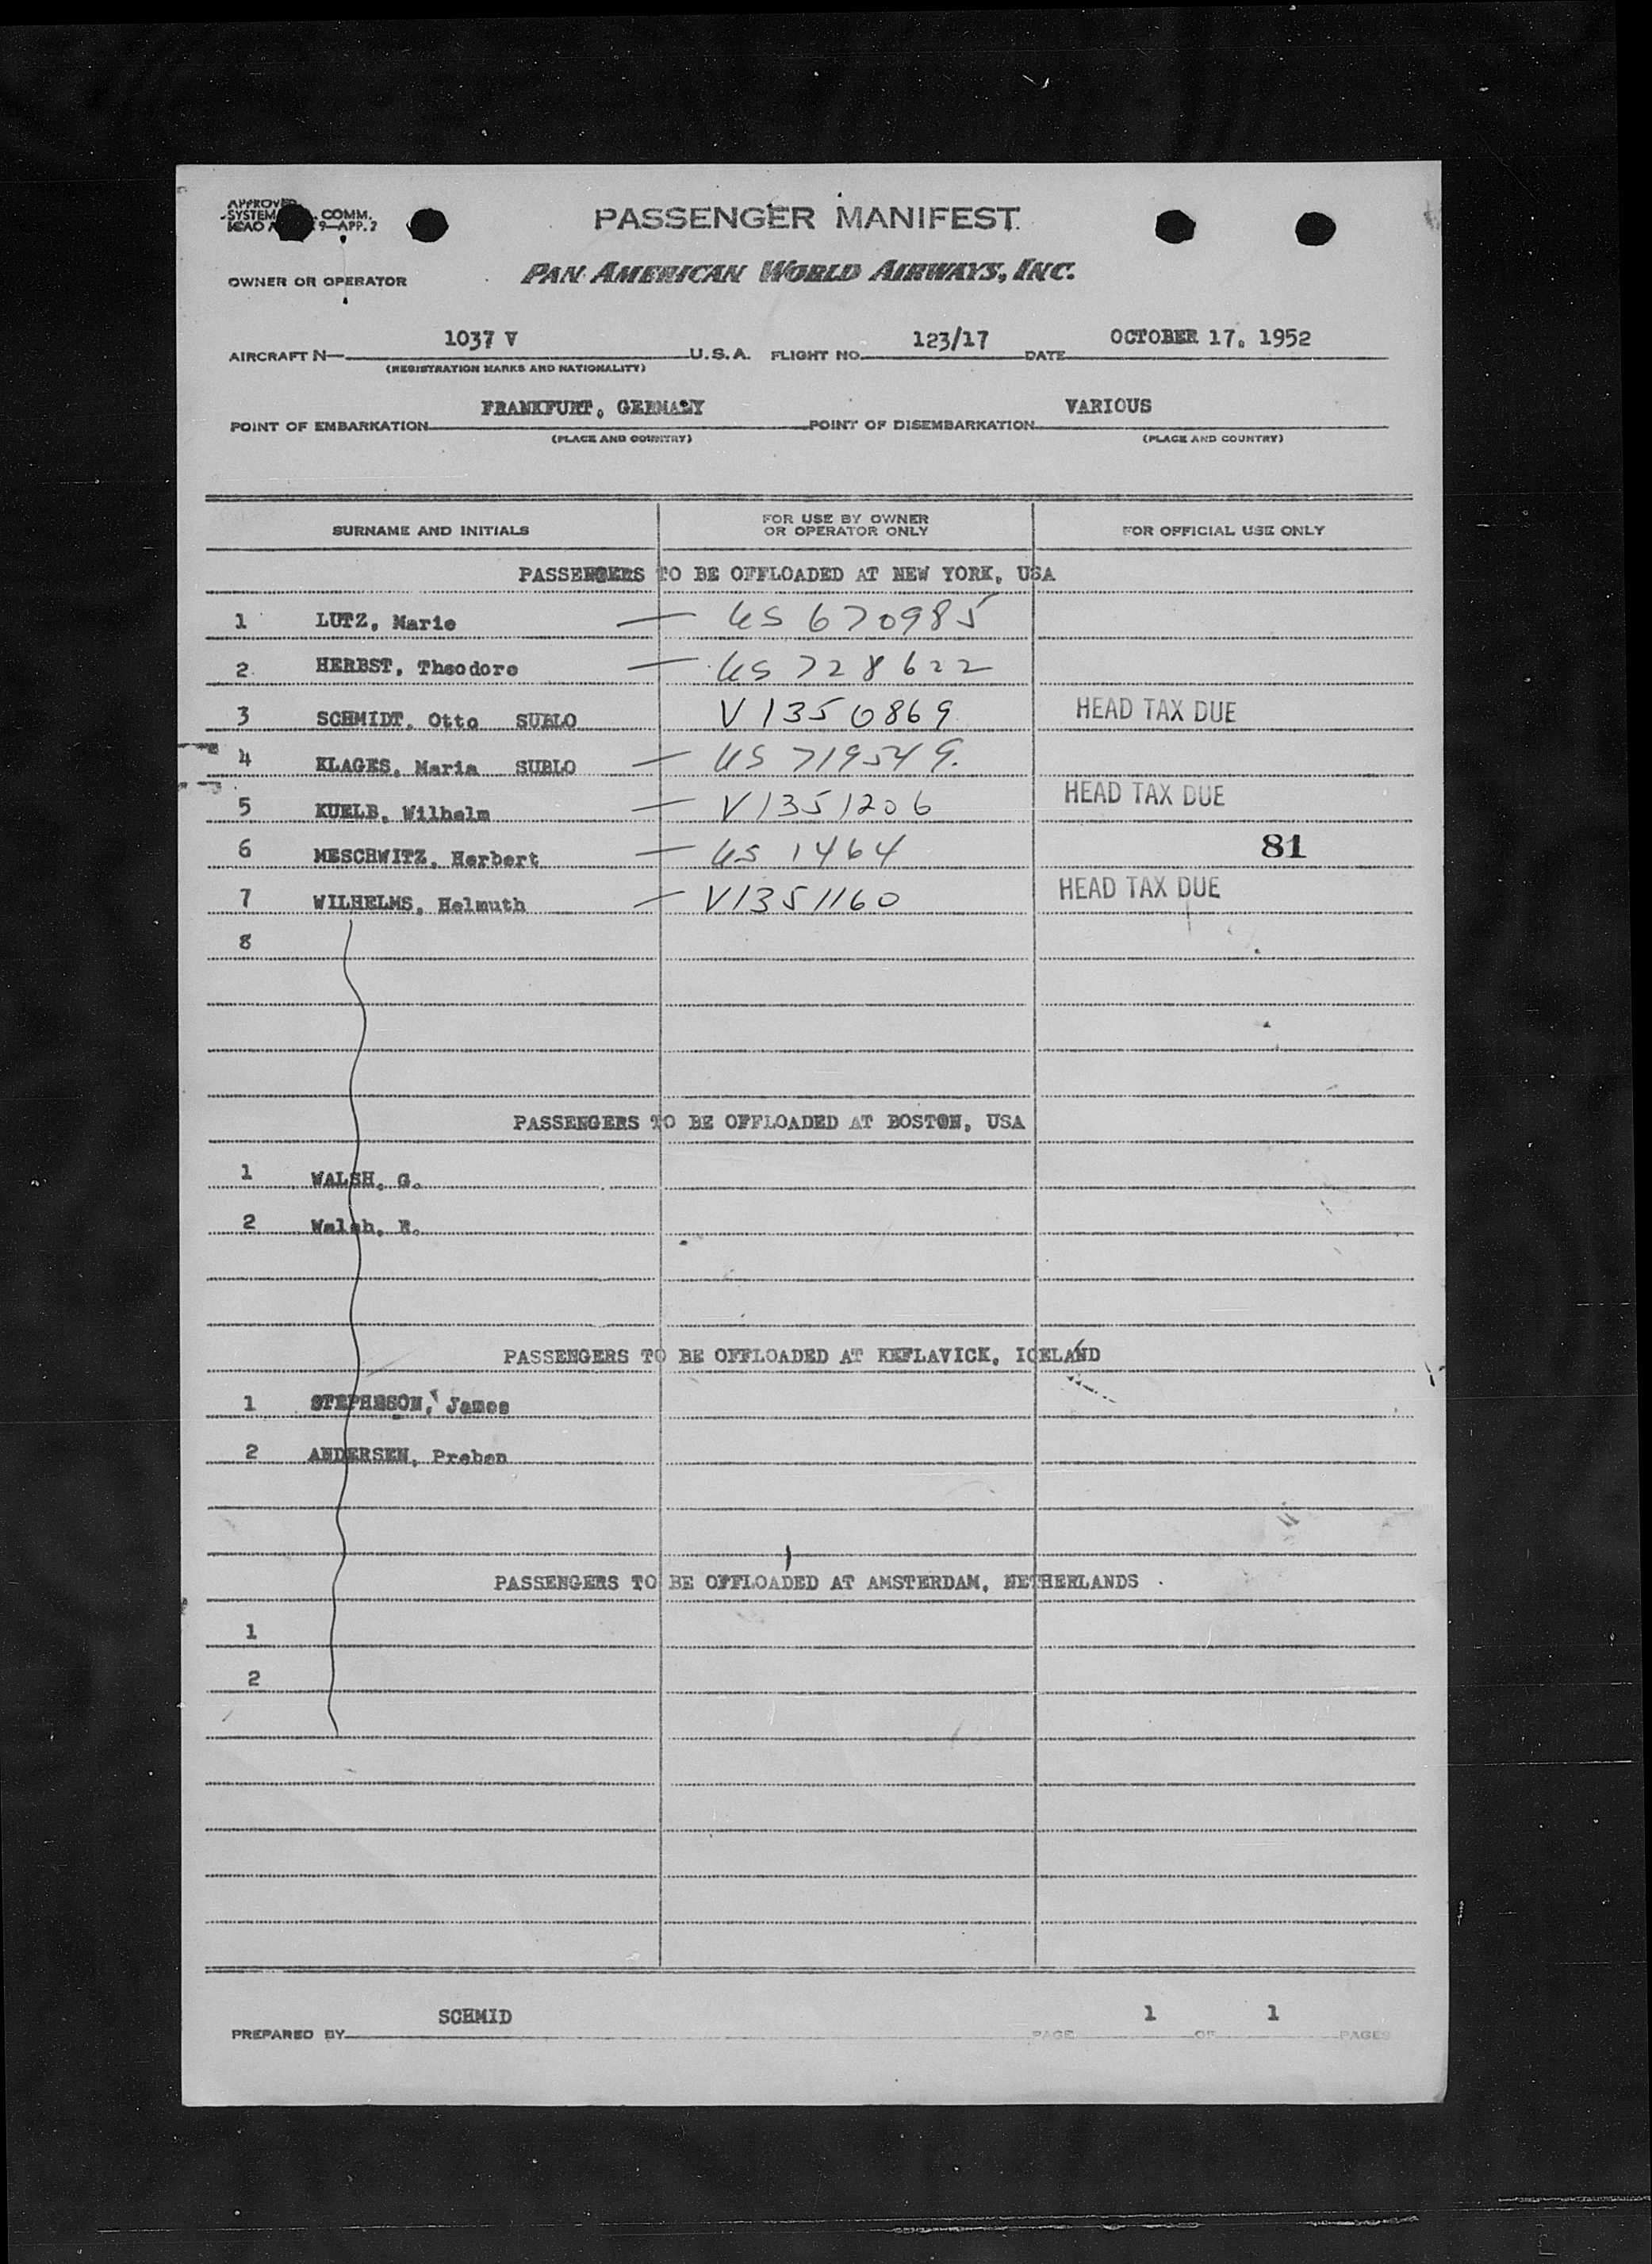 APPROVED
SYSTEM COMM.
ICAO 9—APP. 2
PASSENGER MANIFEST
OWNER OR OPERATOR PAN AMERICAN WORLD AIRWAYS, INC.
AIRCRAFT N— 1037 V U.S.A. FLIGHT NO. 123/17 DATE OCTOBER 17. 1952
(REGISTRATION MARKS AND NATIONALITY)
POINT OF EMBARKATION FRANKFURT, GERMANY POINT OF DISEMBARKATION VARIOUS
(PLACE AND COUNTRY) (PLACE AND COUNTRY)
SURNAME AND INITIALS FOR USE BY OWNER OR OPERATOR ONLY FOR OFFICIAL USE ONLY
PASSENGERS TO BE OFFLOADED AT NEW YORK, USA
1 LUTZ, Marie — US 670985
2. HERBST, Theodore — US 728622
3 SCHMIDT, Otto SUBLO V1350869 HEAD TAX DUE
4 KLAGES, Maria SUBLO — US 719549.
5 KUELB, Wilhelm — V1351206 HEAD TAX DUE
6 MESCHWITZ, Herbert — US 1464 81
7 WILHELMS, Helmuth — V1351160 HEAD TAX DUE
8
PASSENGERS TO BE OFFLOADED AT BOSTON, USA
1 WALSH, G.
2 Walsh, E.
PASSENGERS TO BE OFFLOADED AT KEFLAVICK, ICELAND
1 STEPHESON, James
2 ANDERSEN, Preben
PASSENGERS TO BE OFFLOADED AT AMSTERDAM, NETHERLANDS
1
2
PREPARED BY SCHMID PAGE 1 OF 1 PAGES